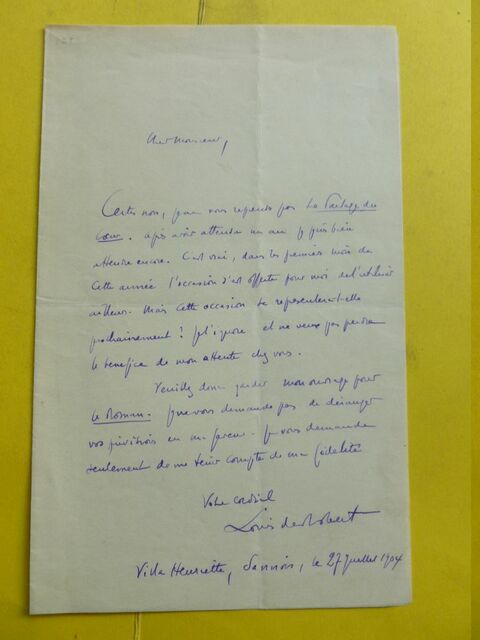 Cher Monsieur,
Certes non, je ne vous reprends pas Le Partage du
Cœur. Après avoir attendu un an je puis bien
attendre encore. C'est vrai, dans les premiers mois de
cette année l'occasion s'est offerte pour moi de l'utiliser
ailleurs. Mais cette occasion se représentera-t-elle
prochainement ? Je l'ignore et ne veux pas perdre
le bénéfice de mon attente chez vous.
Veuillez donc garder mon ouvrage pour
le Roman. Je ne vous demande pas de déranger
vos prévisions en ma faveur. Je vous demande
seulement de me tenir compte de ma fidélité
Votre cordial
Louis de Robert
Villa Henriette, Sannois, le 27 juillet 1904